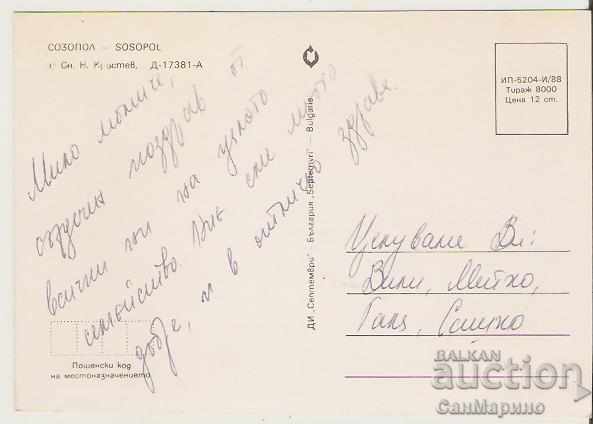 СОЗОПОЛ — SOSOPOL
Сн. Н. Кръстев, Д-17381-А
ИП-5204-И/88
Тираж 8000
Цена 12 ст.
ДИ „Септември" — България „Septemvri" — Bulgarie
Мило момиче,
поздрав от
всички ни на цялото
семейство. Ние сме много
добре, и в отлично здраве.
Целуваме Ви:
Вили, Митко,
Галя, Сашко
Пощенски код
на местоназначението
BALKAN
auction
СанМарино